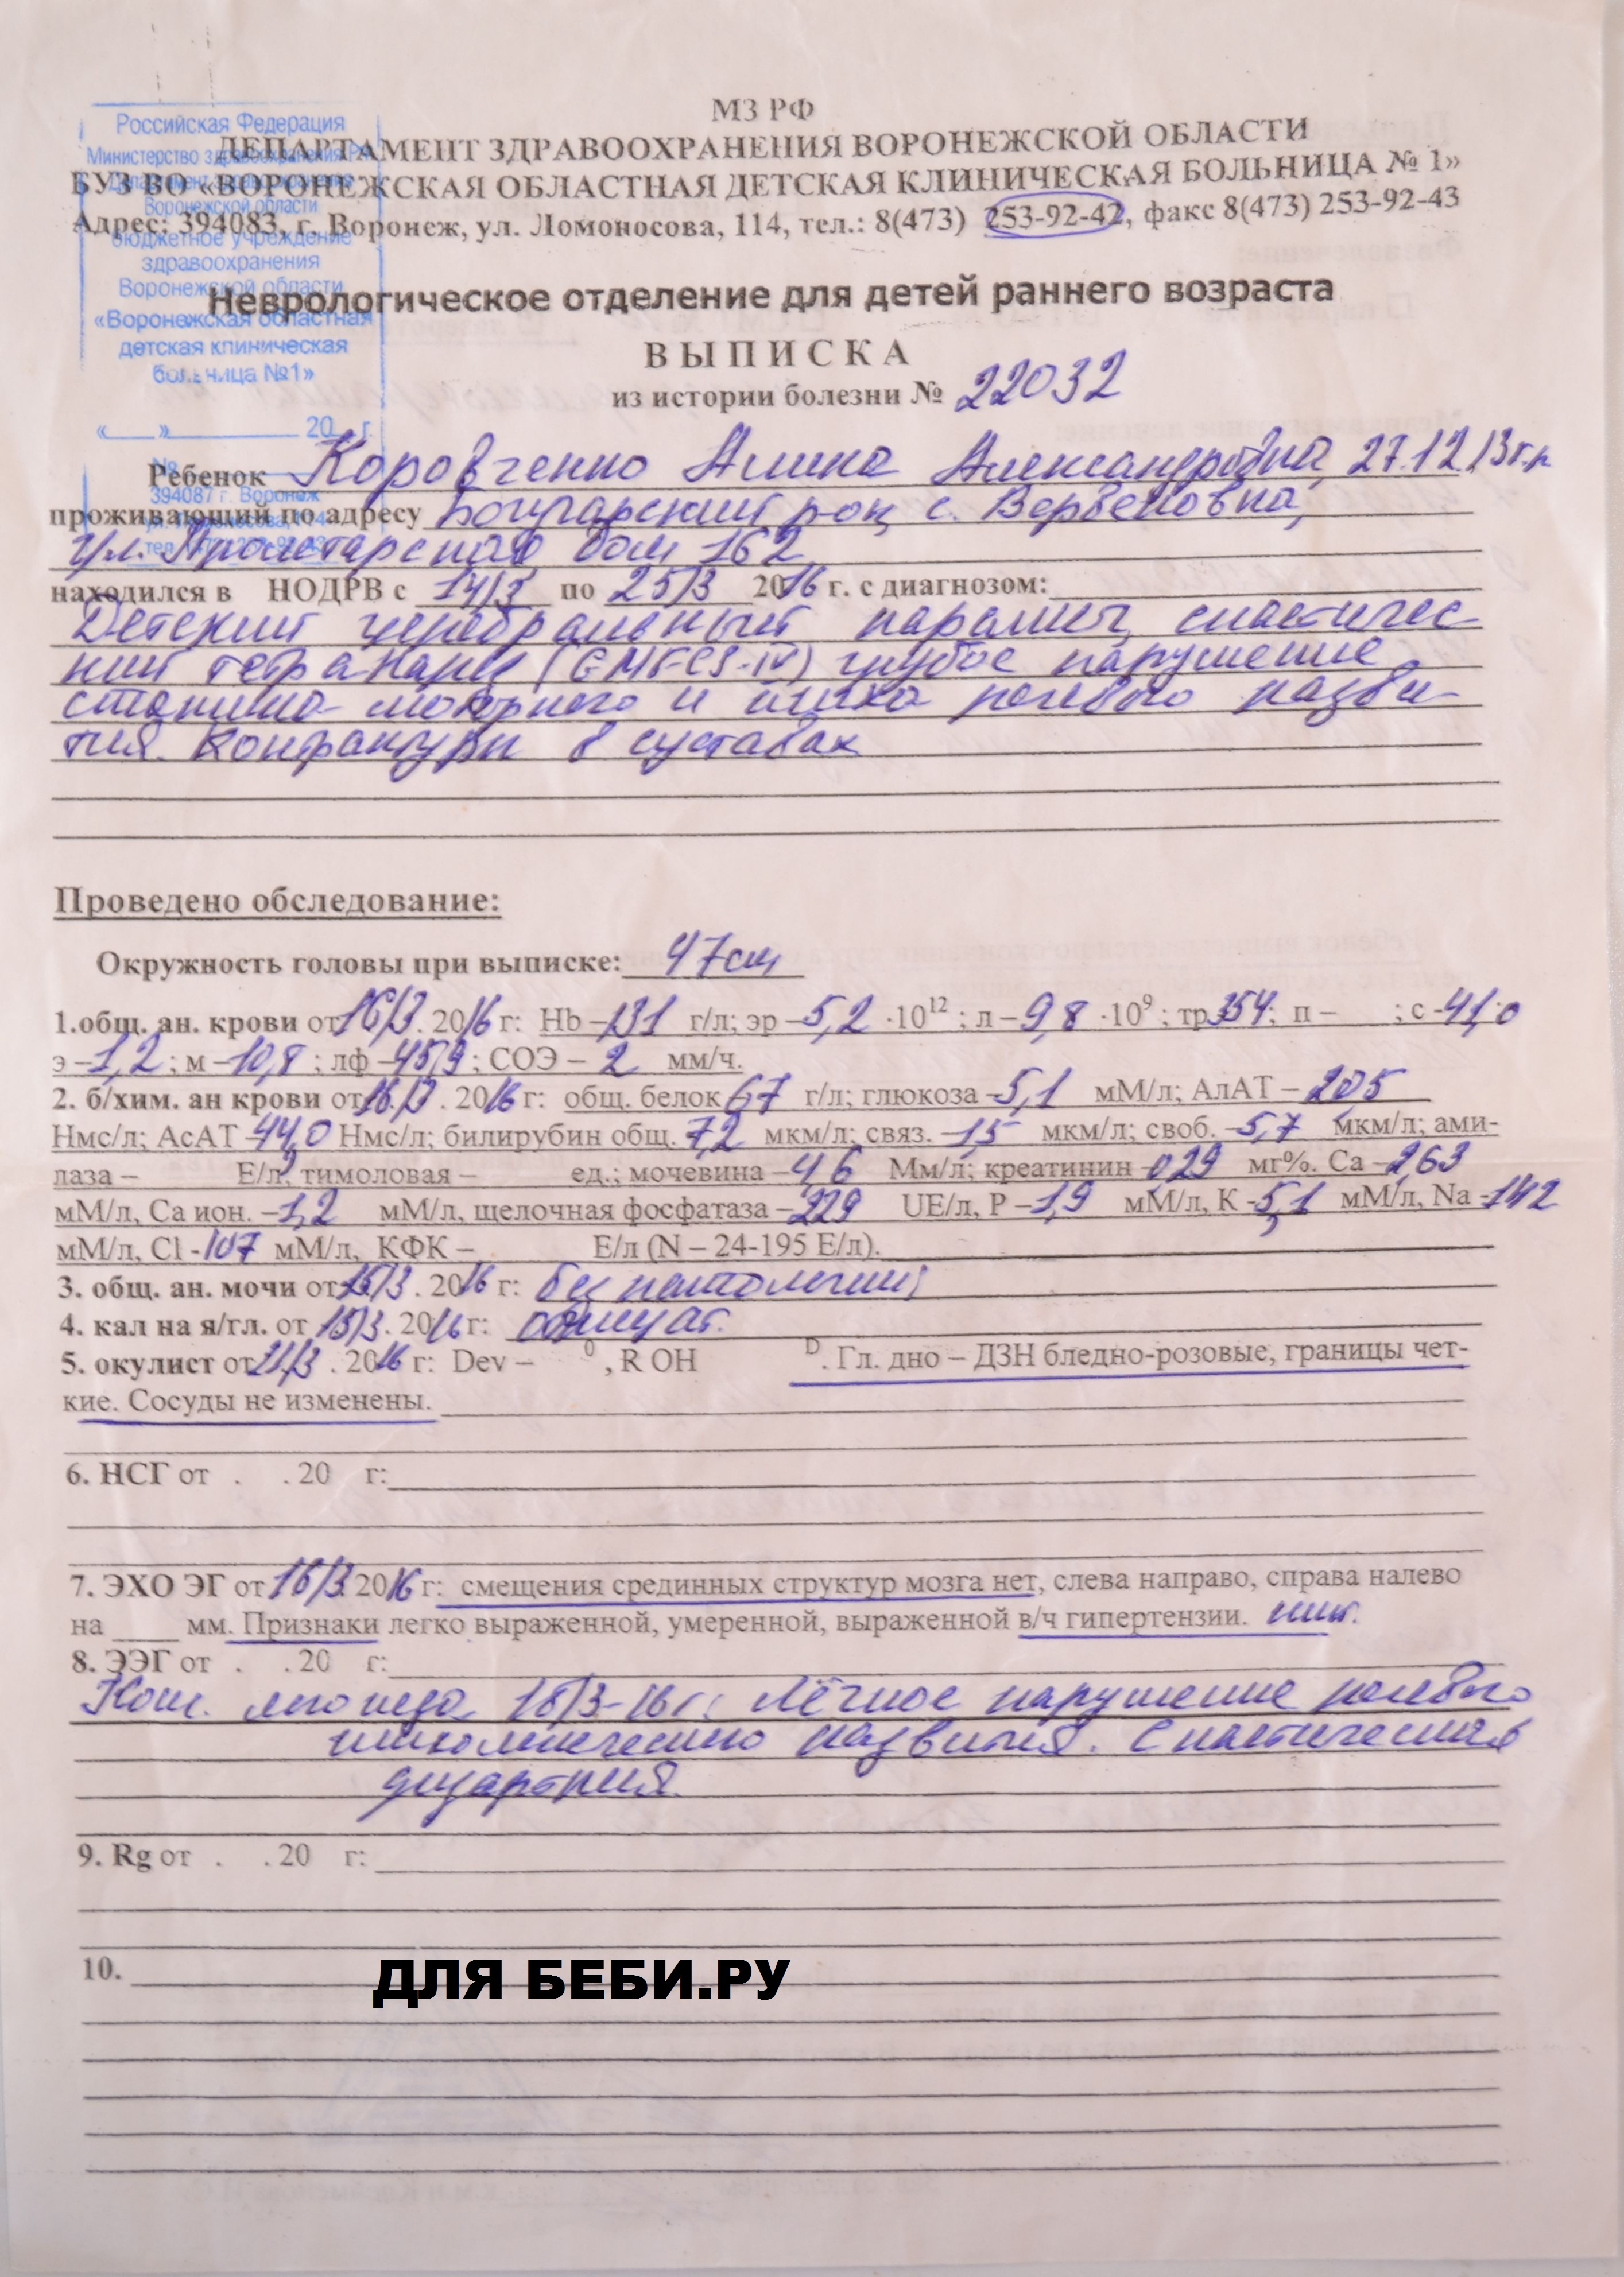 МЗ РФ
ДЕПАРТАМЕНТ ЗДРАВООХРАНЕНИЯ ВОРОНЕЖСКОЙ ОБЛАСТИ
БУЗ ВО «ВОРОНЕЖСКАЯ ОБЛАСТНАЯ ДЕТСКАЯ КЛИНИЧЕСКАЯ БОЛЬНИЦА № 1»
Адрес: 394083, г. Воронеж, ул. Ломоносова, 114, тел.: 8(473) 253-92-42, факс 8(473) 253-92-43
Российская Федерация
Министерство здравоохранения РФ
Департамент здравоохранения
Воронежской области
бюджетное учреждение
здравоохранения
Воронежской области
«Воронежская областная
детская клиническая
больница №1»
«___»________ 20__ г.
№
394087 г. Воронеж
Неврологическое отделение для детей раннего возраста
ВЫПИСКА
из истории болезни № 22032
Ребенок Коровченко Алина Александровна, 27.12.13г.р
проживающий по адресу Богучарский р-он, с. Вербеновка,
ул. Пролетарская дом 162
находился в НОДРВ с 14/3 по 25/3 2016 г. с диагнозом:
Детский церебральный паралич, спастичес-
кий тетрапарез (GMFCS-IV) грубое нарушение
статико-моторного и психо речевого разви-
тия. Контрактуры в суставах
Проведено обследование:
Окружность головы при выписке: 47см
1.общ. ан. крови от 16/3. 2016 г: Hb –131 г/л; эр –5,2 ·10¹² ; л –9,8 ·10⁹ ; тр 354; п – ; с -41,0
э –1,2 ; м –10,8 ; лф –45,9 ; СОЭ – 2 мм/ч.
2. б/хим. ан крови от 16/3 . 2016 г: общ. белок 67 г/л; глюкоза –5,1 мМ/л; АлАТ – 20,5
Нмс/л; АсАТ –44,0 Нмс/л; билирубин общ. 7,2 мкм/л; связ. –1,5 мкм/л; своб. –5,7 мкм/л; ами-
лаза – Е/л; тимоловая – ед.; мочевина –4,6 Мм/л; креатинин –029 мг%. Ca –2,63
мМ/л, Ca ион. –1,2 мМ/л, щелочная фосфатаза –229 UE/л, P –1,9 мМ/л, K -5,1 мМ/л, Na -142
мМ/л, Cl -107 мМ/л, КФК – Е/л (N – 24-195 Е/л).
3. общ. ан. мочи от 15/3 . 2016 г: без патологии;
4. кал на я/гл. от 15/3. 2016 г: отрицат.
5. окулист от 21/3 . 2016 г: Dev – ⁰ , R OH ᴰ. Гл. дно – ДЗН бледно-розовые, границы чет-
кие. Сосуды не изменены.
6. НСГ от . . 20 г:
7. ЭХО ЭГ от 16/3 2016 г: смещения срединных структур мозга нет, слева направо, справа налево
на ____ мм. Признаки легко выраженной, умеренной, выраженной в/ч гипертензии. нит.
8. ЭЭГ от . . 20 г:
Конс. логопеда 18/3-16г: Лёгкое нарушение речевого
психического развития. Спастическая
дизартрия.
9. Rg от . . 20 г:
10.
ДЛЯ БЕБИ.РУ